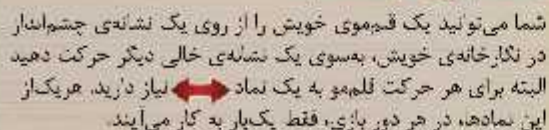 شما می‌توانید یک قلم‌موی خویش را از روی یک نشانه‌ی چشم‌انداز
در نگارخانه‌ی خویش، به‌سوی یک نشانه‌ی خالی دیگر حرکت دهید
البته برای هر حرکت قلم‌مو به یک نماد نیاز دارید. هریک‌از
این نمادها، در هر دور بازی، فقط یک‌بار به کار می‌آیند.